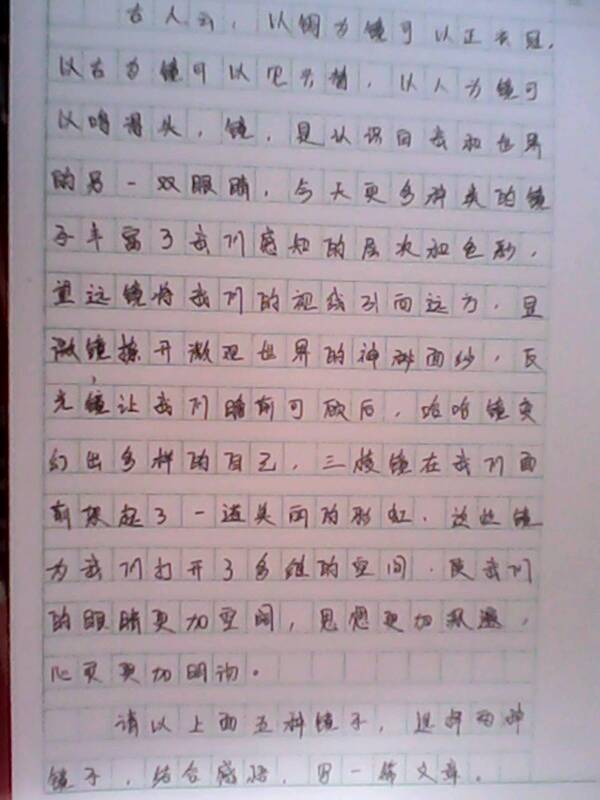 古人云，以铜为镜可以正衣冠，
以古为镜可以见兴替，以人为镜可
以明得失，镜，是认识自我和世界
的另一双眼睛，今天更多种类的镜
子丰富了我们感知的层次和色彩，
望远镜将我们的视线引向远方，显
微镜撩开微观世界的神秘面纱，反
光镜让我们瞻前可顾后，哈哈镜变
幻出多样的自己，三棱镜在我们面
前架起了一道美丽的彩虹，这些镜
为我们打开了多维的空间，使我们
的眼睛更加空阔，思想更加深邃，
心灵更加明
请以上面五种镜子，选择两种
镜子，结合感悟，写一篇文章。